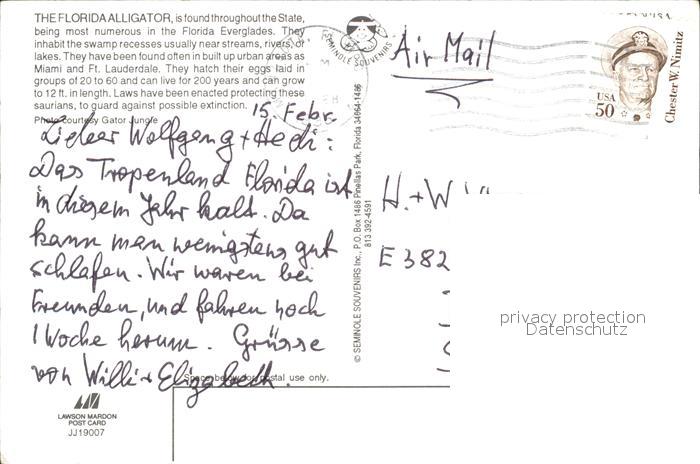 THE FLORIDA ALLIGATOR, is found throughout the State,
being most numerous in the Florida Everglades. They
inhabit the swamp recesses usually near streams, rivers, or
lakes. They have been found often in built up urban areas as
Miami and Ft. Lauderdale. They hatch their eggs laid in
groups of 20 to 60 and can live for 200 years and can grow
to 12 ft. in length. Laws have been enacted protecting these
saurians, to guard against possible extinction.
Photo courtesy Gator Jungle
15. Febr.
Lieber Wolfgang + Hedi:
Das Tropenland Florida ist
in diesem Jahr kalt. Da
kann man wenigstens gut
schlafen. Wir waren bei
Freunden, und fahren noch
1 Woche herum. Grüsse
von Willi + Elizabeth.
Space below for postal use only.
LAWSON MARDON
POST CARD
JJ19007
SEMINOLE SOUVENIRS
© SEMINOLE SOUVENIRS Inc., P.O. Box 1486 Pinellas Park, Florida 34664-1486
813 392-4591
Air Mail
USA
50
Chester W. Nimitz
H. + W
E 382
privacy protection
Datenschutz